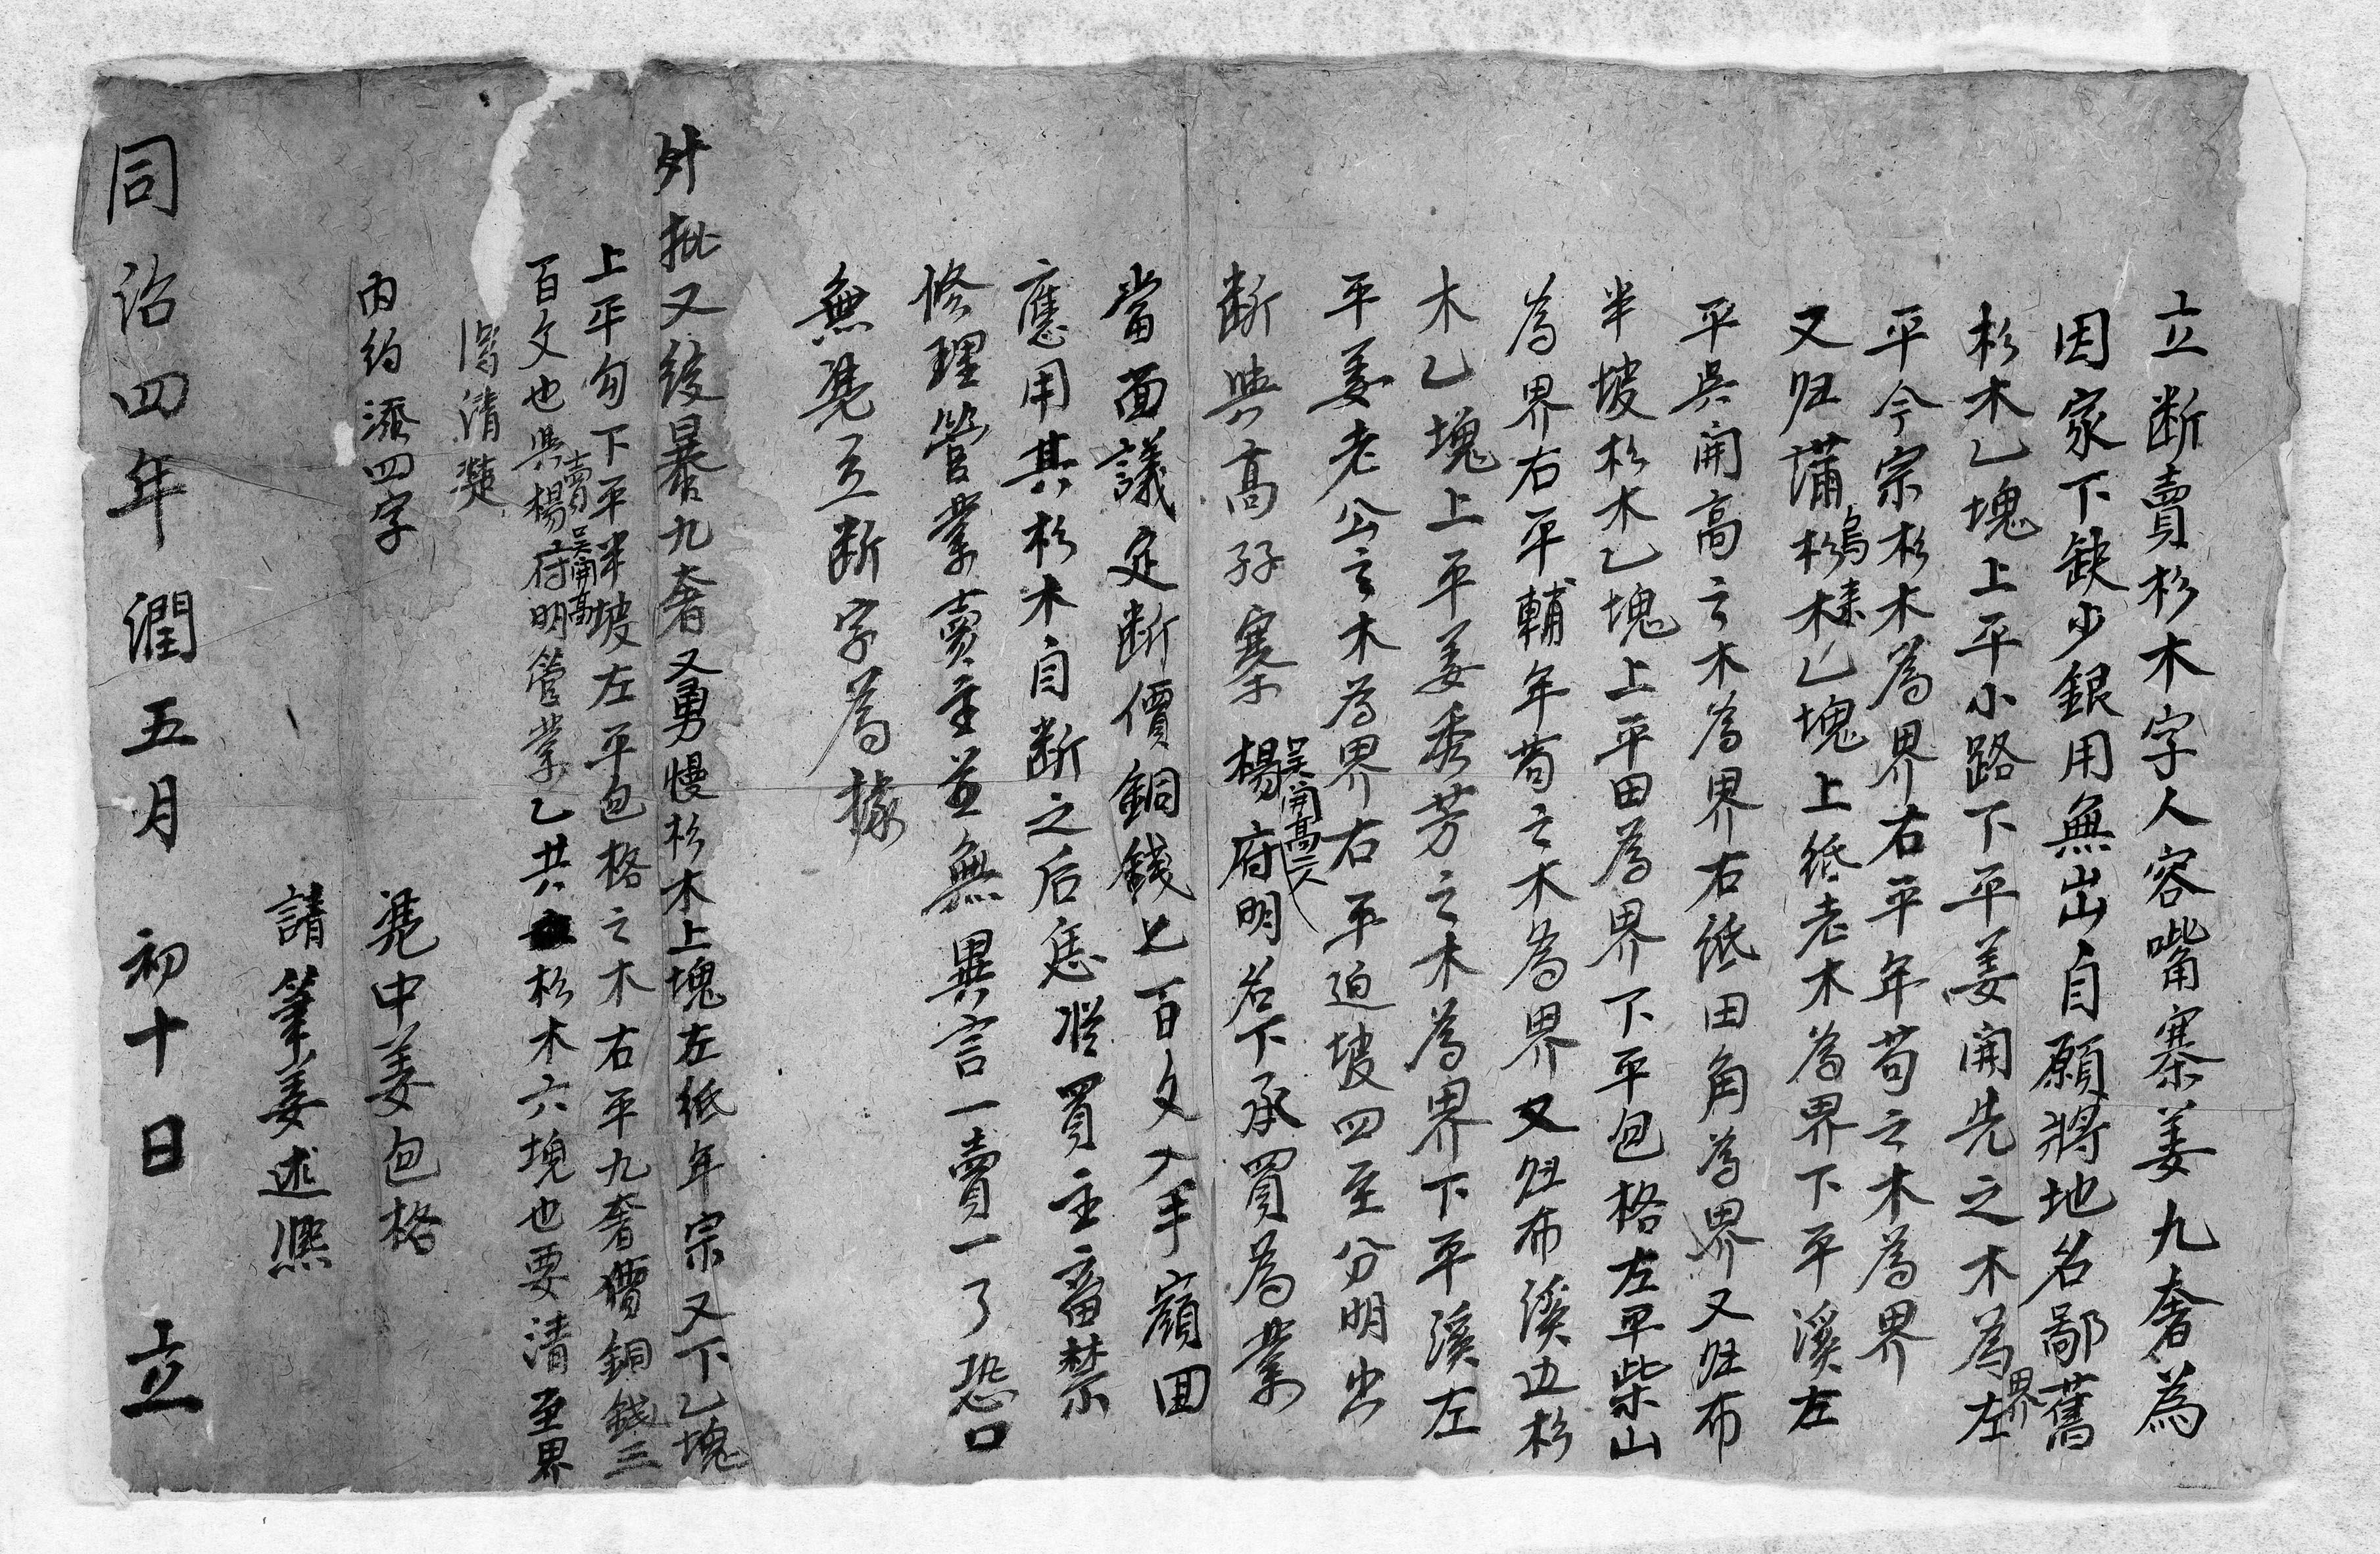 立断賣杉木字人容嘴寨姜九奢為
因家下缺少銀用無出自願將地名鄗舊
杉木乙塊上平小路下平姜開先之木為界左
平今宗杉木為界右平年苟之木為界
又归蒲杉木乙塊上紙老木為界下平溪左
平吳開高之木為界右紙田角為界又归布
半坡杉木乙塊上平田為界下平包格左平柴山
為界右平輔年苟之木為界又归布溪边杉
木乙塊上平姜秀芳之木為界下平溪左
平姜老公之木為界右平迫坡四至分明出
断與高孖寨吳開高二人楊府明名下承買為業
當面議定断價銅錢七百文入手領回
應用其杉木自断之后恁從買主畜禁
修理管業賣主並無異言一賣一了恐口
無凴立断字為據
外批又後暴九奢又勇慢杉木上塊左紙年宗又下乙塊
上平勾下平半坡左平包格之木右平九奢價銅錢三
百文也賣吳開高與楊府明管業乙共杉木六塊也要清至界
清楚
內約添四字
凴中姜包格
請筆姜述熙
同治四年潤五月初十日立